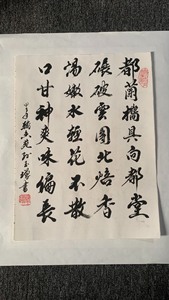 都蘭攜具向都堂
碾破雲團北焙香
湯嫩水輕花不散
口甘神爽味偏長
書